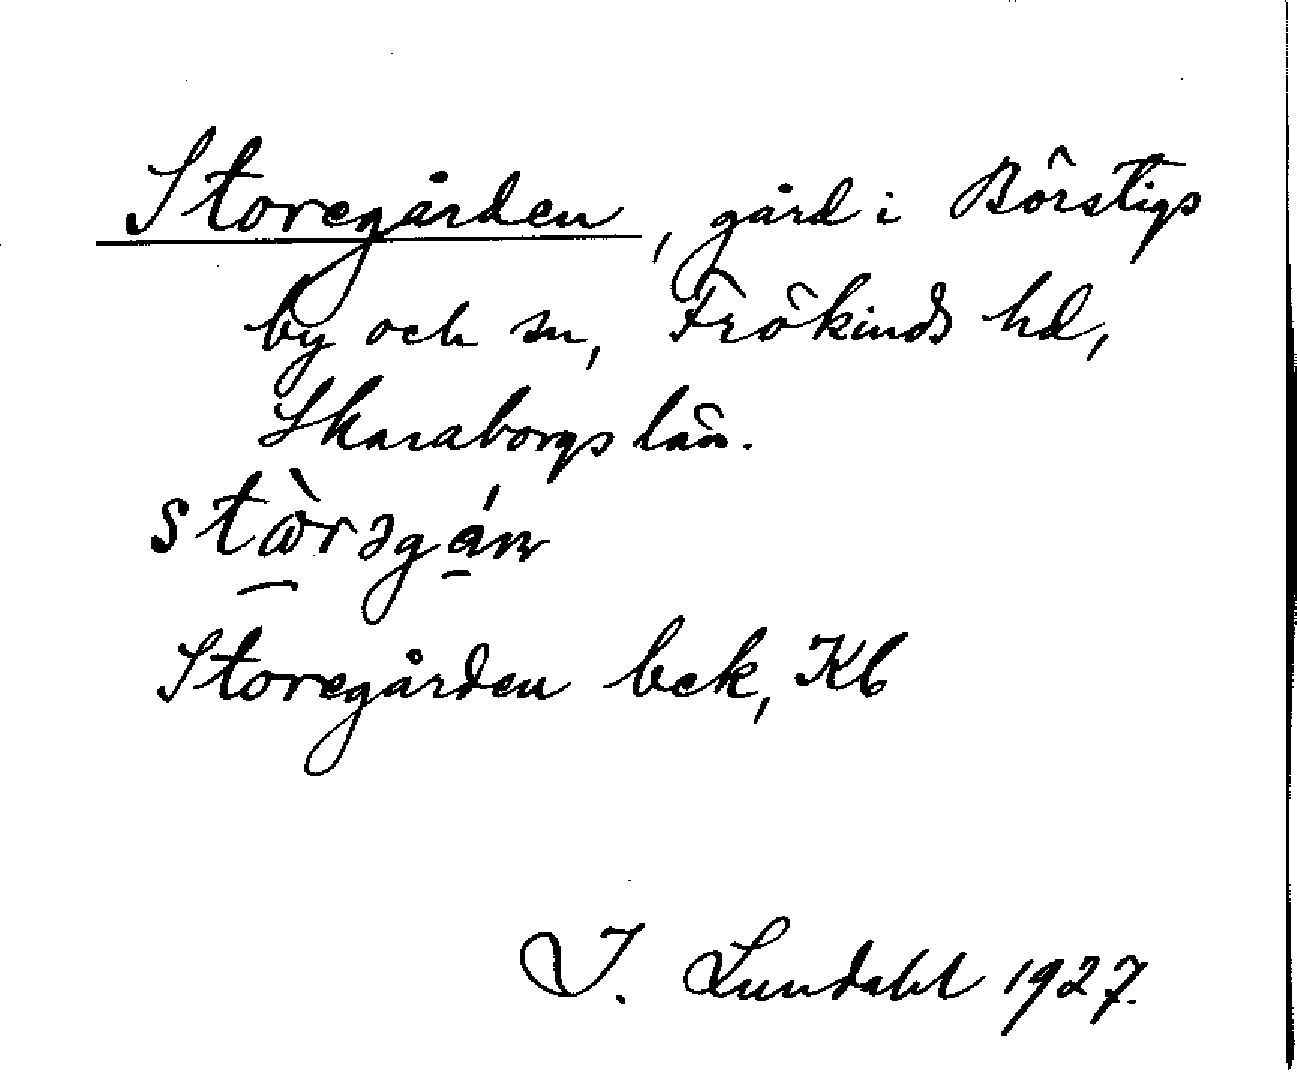 Storegården, gård i Börstigs
by och sn, Frökinds hd,
Skaraborgs län.
Storegården bek, Kb
I. Lundahl 1927.